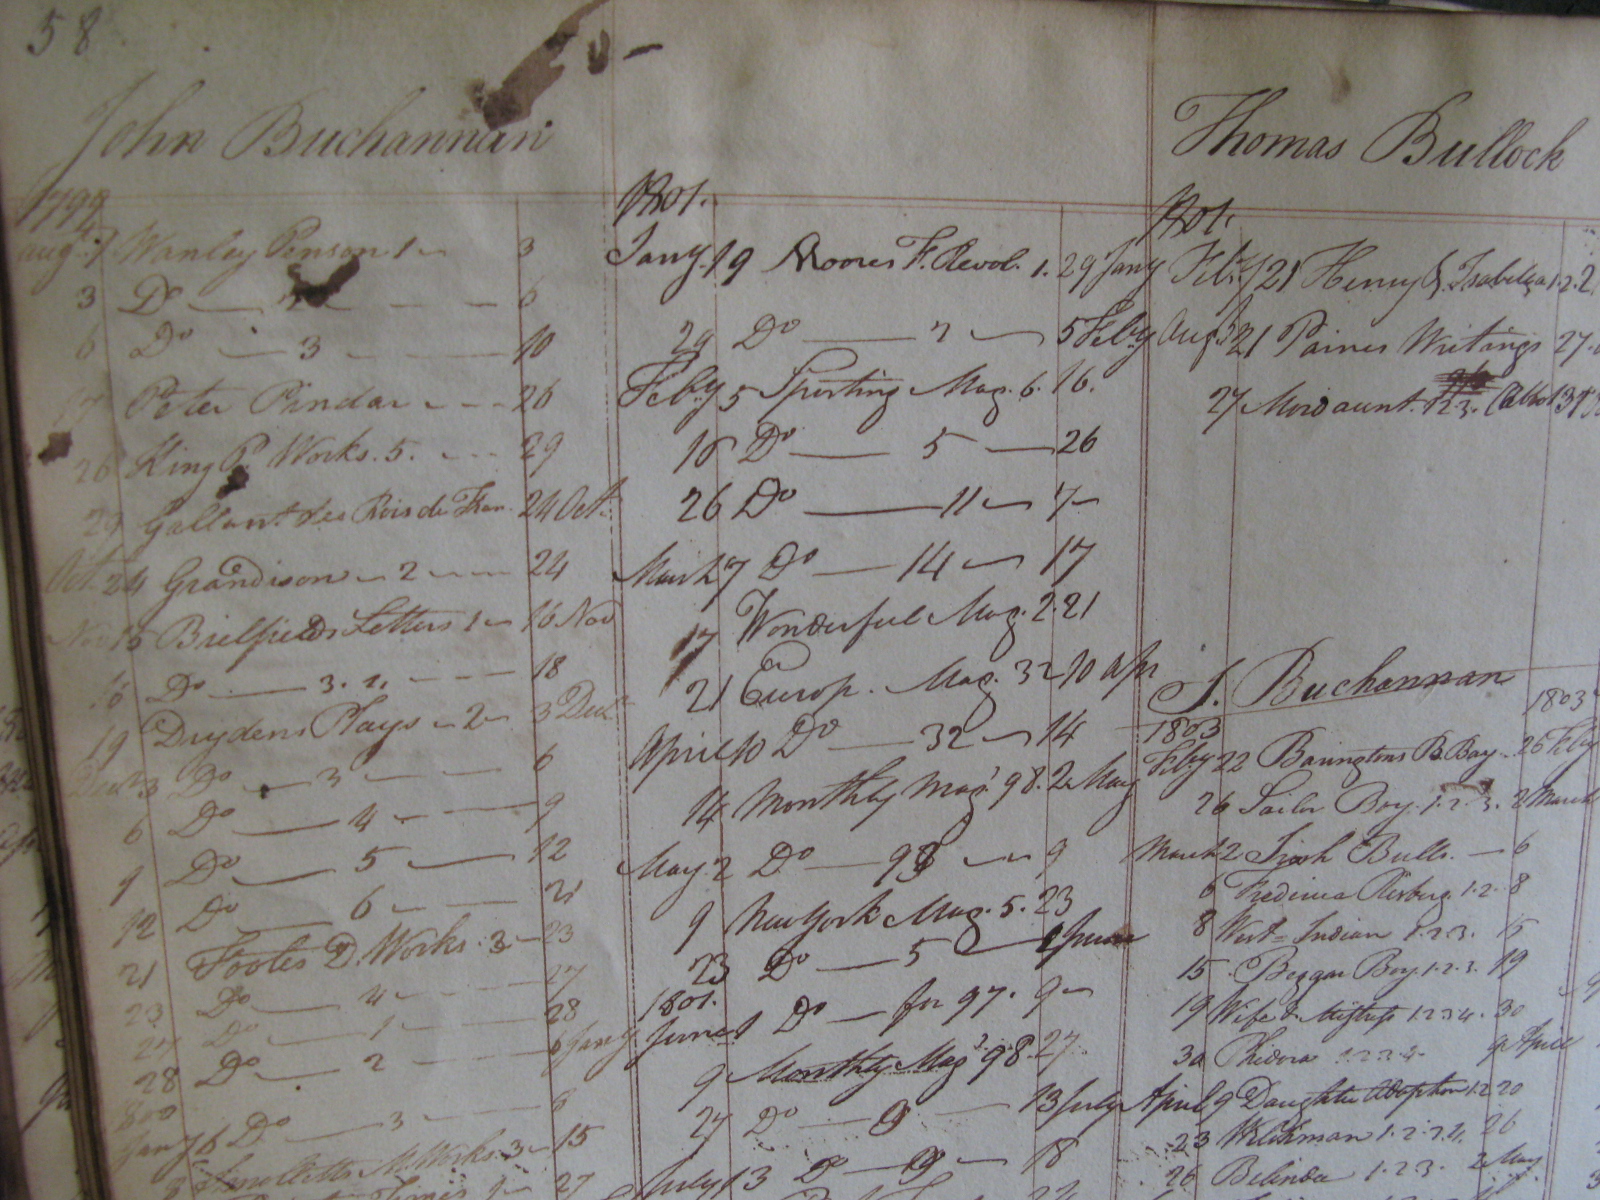 58
John Buchannan
1799
Augt 1 Wanley Penson 1 3
3 Do 2 6
6 Do 3 10
Peter Pindar 26
26 King P. Works. 5. 29
29 Gallant des Rois de Fran. 24 Oct.
Oct. 24 Grandison 2 24
Nov 15 Bielfields Letters 1 16 Nov
16 Do 3. 18
19 Drydens Plays 2 3 Decr
Decr 3 Do 3 6
6 Do 4 9
9 Do 5 12
12 Do 6 21
21 Footes D. Works. 3 23
23 Do 4 27
27 Do 1 28
28 Do 2 6 Jany
1800
Jany 6 Do 3 8
8 M. Works. 3 15
Times 27
1801.
Jany. 19 Moores F. Revol. 1. 29 Jany
29 Do 2 5 Feby
Feby 5 Sporting Mag. 6. 16.
16 Do 5 26
26 Do 11 7
March 7 Do 14 17
17 Wonderful Mag. 2. 21
21 Europ. Mag. 32 10 Apr
April 10 Do 32 14
14 Monthly Mag. 98. 2 May
May. 2 Do 98 9
9 New York Mag. 5. 23
23 Do 5 1 June
1801.
June 1 Do for 97. 9
9 Monthly Mag. 98. 27
27 Do 9 13 July
July 13 Do 9 18
Thomas Bullock
1801.
Feby 21 Henry & Isabella 1.2. 21
Aug 21 Paines Writings 27.
27 Mordaunt. 1.2.3. 31
J. Buchannan
1803 1803
Feby 22 Baringtons B. Bay. 26 Feby
26 Sailor Boy. 1.2.3. 2 March
March 2 Irish Bulls. 6
6 1.2. 8
8 West=Indian 1.2.3. 15
15. Beggar Boy. 1.2.3. 19
19 Wife & Mistress 1.2.3.4. 30
30 1.2.3.4. 9 April
April 9 Daughter Adoption 1.2 20
23 Wilkman 1.2.3.4. 26
26 Belinda 1.2.3. 2 May